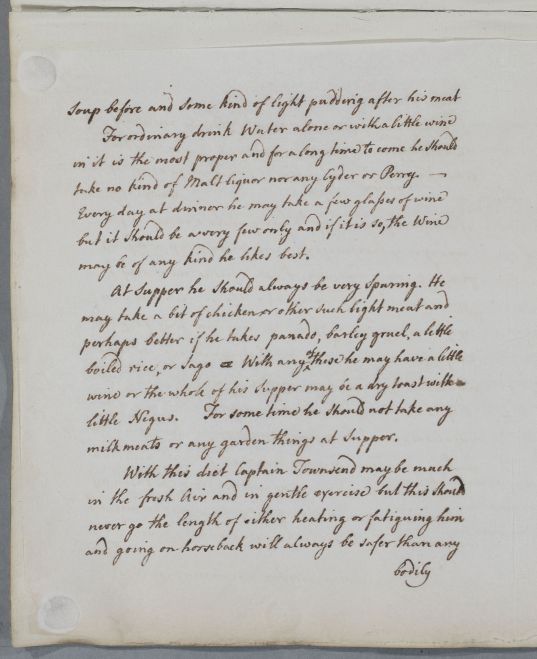 soup before and some kind of light pudderig after his meat
For ordinary drink Water alone or with a little wine
in it is the most proper and for a long time to come he should
take no kind of Malt liquor nor any Cyder or Perry. —
Every day at dinner he may take a few glasses of wine
but it should be a very few only and if it is so, the Wine
may be of any kind he likes best.
At Supper he should always be very sparing. He
may take a bit of chicken or other such light meat and
perhaps better if he takes panado, barley gruel, a little
boiled rice, or Sago With any of these he may have a little
wine or the whole of his Supper may be a dry toast with
little Negus. For some time he should not take any
milkmeats or any garden things at Supper.
With this diet Captain Townsend may be much
in the fresh Air and in gentle exercise but this should
never go the length of either heating or fatiguing him
and going on horseback will always be safer than any
bodily